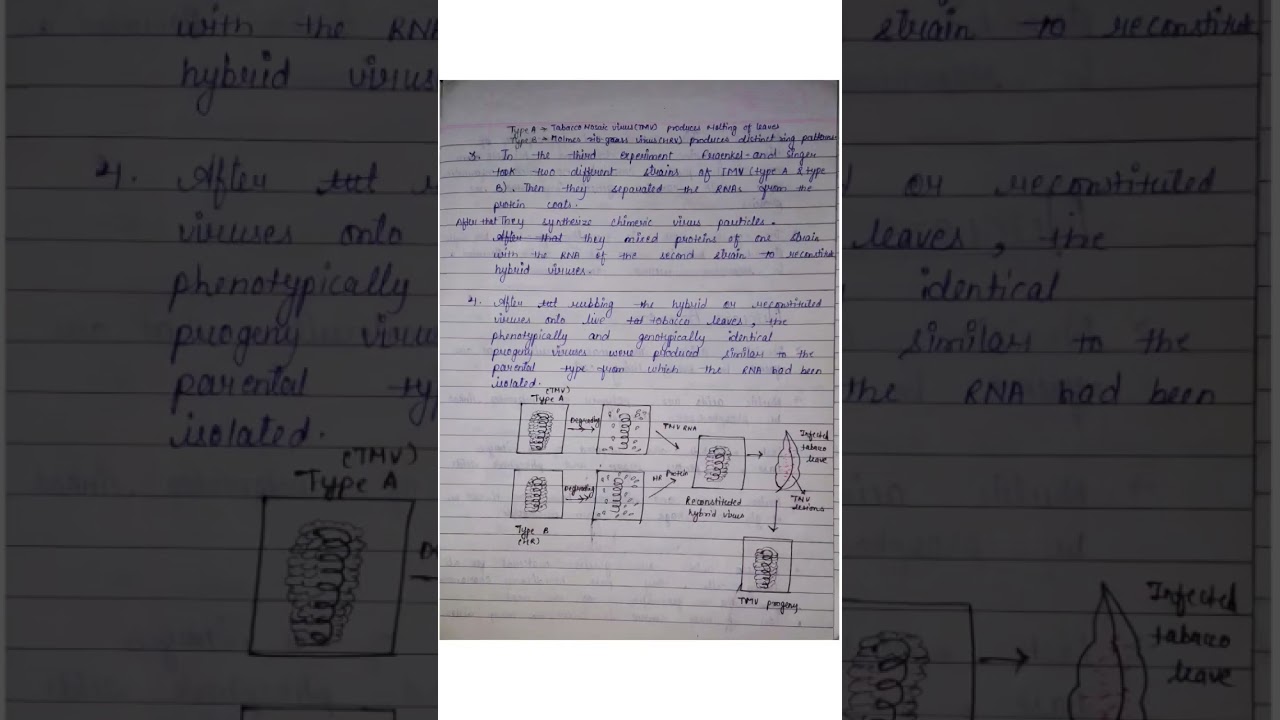 Type A → Tabacco Mosaic virus (TMV) produces Motting of leaves
Type B → Holmes rib grass virus (HRV) produces distinct ring patterns
3. In the third experiment Fraenkel-and singer
took two different strains of TMV (type A & type
B). Then they separated the RNAs from the
protein coats.
After that They synthesize chimeric virus particles.
After that they mixed proteins of one strain
with the RNA of the second strain to reconstitut
hybrid viruses.
4. After rubbing the hybrid or reconstituted
viruses onto live tobacco leaves, the
phenotypically and genotypically identical
progeny viruses were produced similar to the
parental type from which the RNA had been
isolated.
(TMV)
Type A
Degrading
TMV RNA
Infected
tabacco
leave
Degrading
HR Protein
Reconstituted
hybrid virus
TMV
lesions
Type B
(HR)
TMV progeny